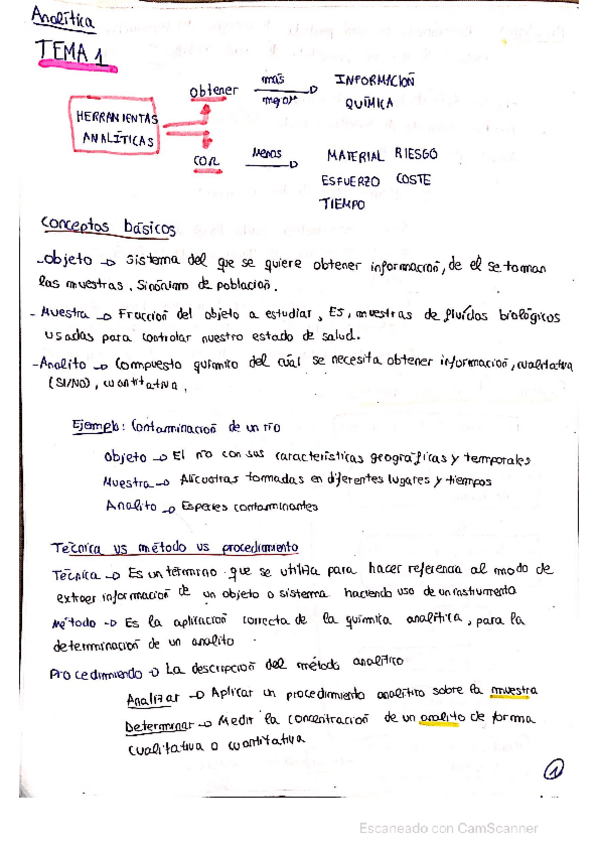 Analítica
TEMA 1
HERRAMIENTAS
ANALÍTICAS
obtener
más
mejor
INFORMACIÓN
QUÍMICA
con
Menos
MATERIAL RIESGO
ESFUERZO COSTE
TIEMPO
Conceptos básicos
- Objeto → Sistema del que se quiere obtener información, de el se toman
las muestras. Sinónimo de población.
- Muestra → Fracción del objeto a estudiar, Ej, muestras de fluídos biológicos
usadas para controlar nuestro estado de salud.
- Analito → Compuesto químico del cuál se necesita obtener información, cualitativa
(SI/NO), cuantitativa.
Ejemplo: Contaminación de un río
Objeto → El río con sus características geográficas y temporales
Muestra → Alicuotras tomadas en diferentes lugares y tiempos
Analito → Especies contaminantes
Técnica vs método vs procedimiento
Técnica → Es un término que se utiliza para hacer referencia al modo de
extraer información de un objeto o sistema haciendo uso de un instrumento
Método → Es la aplicación correcta de la química analítica, para la
determinación de un analito.
Procedimiendo → La descripción del método analítico
Analizar → Aplicar un procedimiento analítico sobre la muestra
Determinar → Medir la concentración de un analito de forma
cualitativa o cuantitativa
1
Escaneado con CamScanner